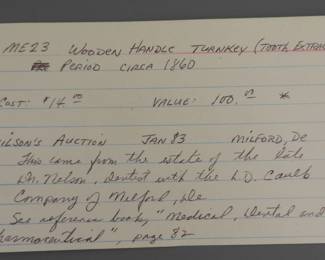 ME23 WOODEN HANDLE TURNKEY (TOOTH EXTRAC
PERIOD CIRCA 1860
COST: $14.00 VALUE: 100.00 *
WILSON'S AUCTION JAN 83 MILFORD, De
This came from the estate of the late
DR. Nelson, Dentist with the L.D. Caulk
Company of Milford, De
See reference book, "Medical, Dental and
Pharmaceutical", page 82